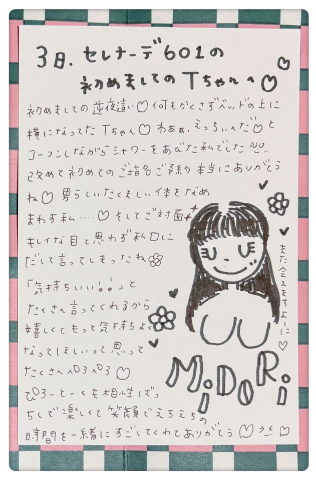 3日、セレナーデ601の
初めましてのTちゃんへ♡
初めましての逆夜這い♡何もかくさずベッドの上に
横になってたTちゃん♡わぁぁ、えっちぃんだ♡と
コーフンしながらシャワーをあびた私でした
改めて初めてのご指名ご予約本当にありがとう
ね♡男らしいたくましい体をなめ
まわす私....♡そしてご対面
キレイな目と思わず私口に
だして言ってしまったね
「気持ちいい」と
たくさん言ってくれるから
嬉しくてもっと気持ちよく
なってほしいって思って
たくさんペロペロ♡
ピロートークも相性ばっ
ちしで楽しくて笑顔でえちえちの
時間を一緒にすごしてくれてありがとう♡
また会えますように♡
MiDORi